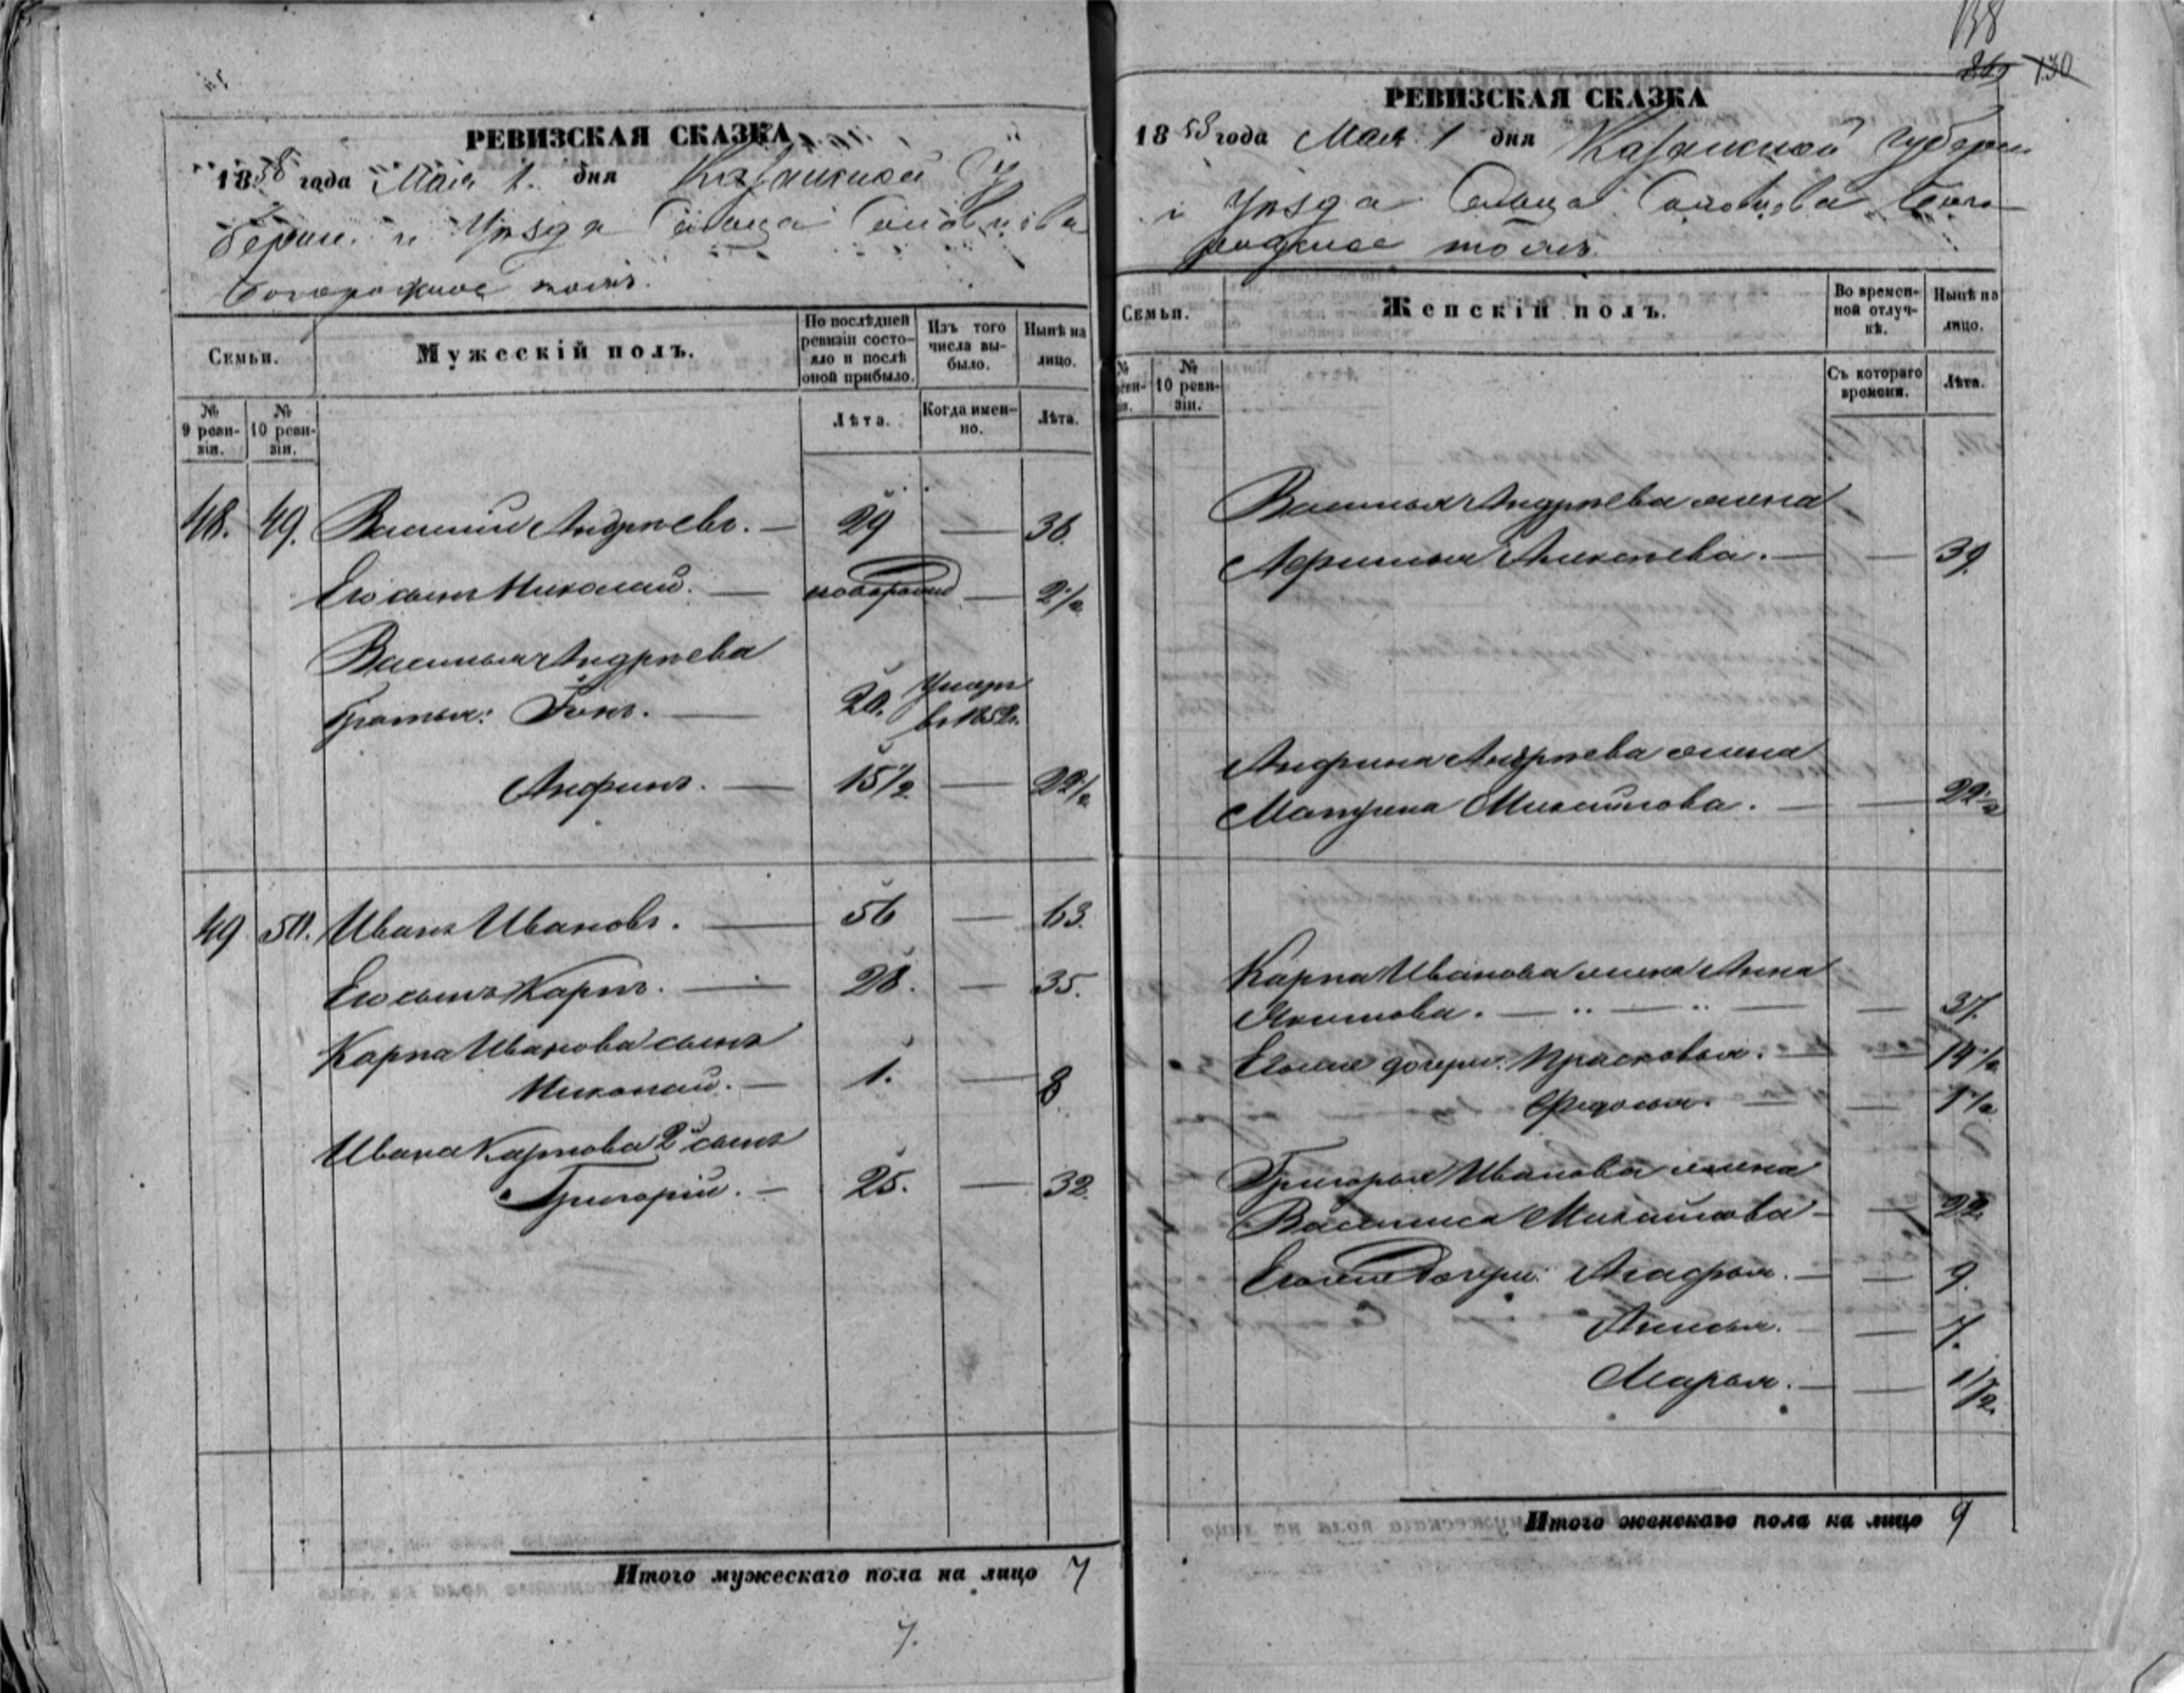 РЕВИЗСКАЯ СКАЗКА
1858 года Мая 1. дня Казанской Гу
берніи и Уѣзда Сельца
Богородское тожъ.
Семьи.
Мужескій полъ.
По послѣдней ревизіи состояло и послѣ оной прибыло.
Изъ того числа выбыло.
Нынѣ на лицо.
№ 9 ревизіи.
№ 10 ревизіи.
Лѣта.
Когда именно.
Лѣта.
48. 49. Василій Андреевъ. — 29 — 36.
Его сынъ Николай. — новорожд — 2½
Василья Андреева
братья: Фокъ. — 20. Умеръ въ 1852.
Анфимъ. — 15½ — 22½
49 50. Иванъ Ивановъ. — 56 — 63.
Его сынъ Карпъ. — 28. — 35.
Карпа Иванова сынъ
Николай. — 1. — 8.
Ивана Карпова 2й сынъ
Григорій. — 25. — 32.
Итого мужескаго пола на лицо 7
7.
138
130
РЕВИЗСКАЯ СКАЗКА
1858 года Мая 1 дня Казанской Губерн
и Уѣзда Сельца Бого
родское тожъ.
Семьи.
Женскій полъ.
Во временной отлучкѣ.
Нынѣ на лицо.
№ 10 ревизіи.
Съ котораго времени.
Лѣта.
Василья Андреева жена
Афимья Алексѣева. — — 39.
Анфима Андреева жена
Матрена Михайлова. — — 22½
Карпа Иванова жена Анна
Якимова. — „ — „ — — 37.
Его же дочери: Прасковья. — — 14½
Федосья. — — 1½
Григорья Иванова жена
Василиса Михайлова — — 22.
Его же дочери: Агафья. — — 9.
Анисья. — — 7.
Марья. — — 1½.
Итого женскаго пола на лицо 9